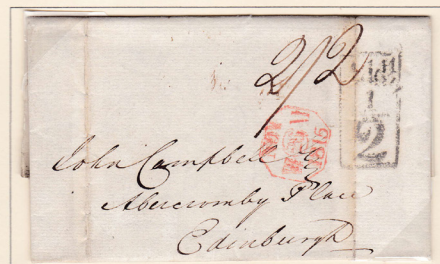 2/2
1
2
1815
John Campbell
Abercromby Place
Edinburgh